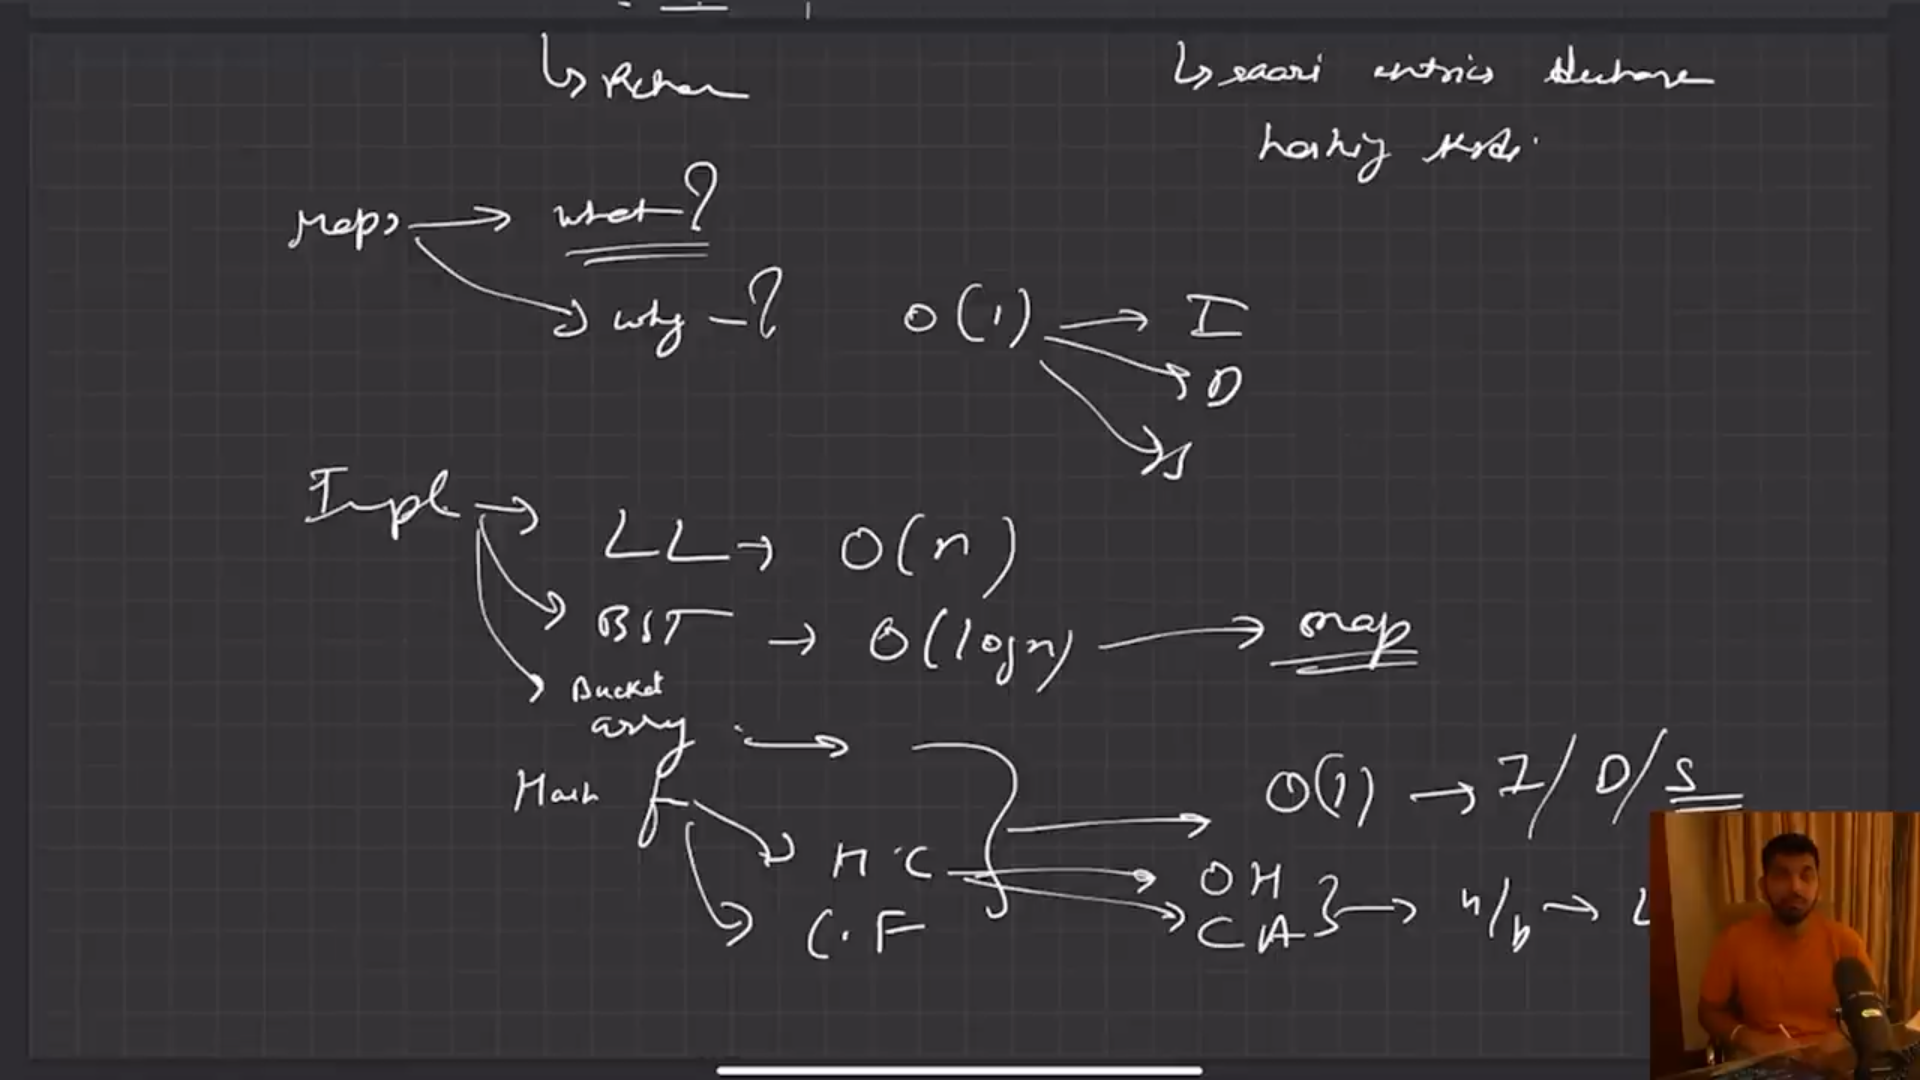 ↳ saari entries dubara
hashing
Maps → what?
→ why - ?
O(1) → I
→ D
→ S
Impl → LL → O(n)
→ BST → O(logn) → map
→ Bucket
array →
Hash f → H.C
→ C.F
O(1) → I/D/S
OH
CA } → n/b → L